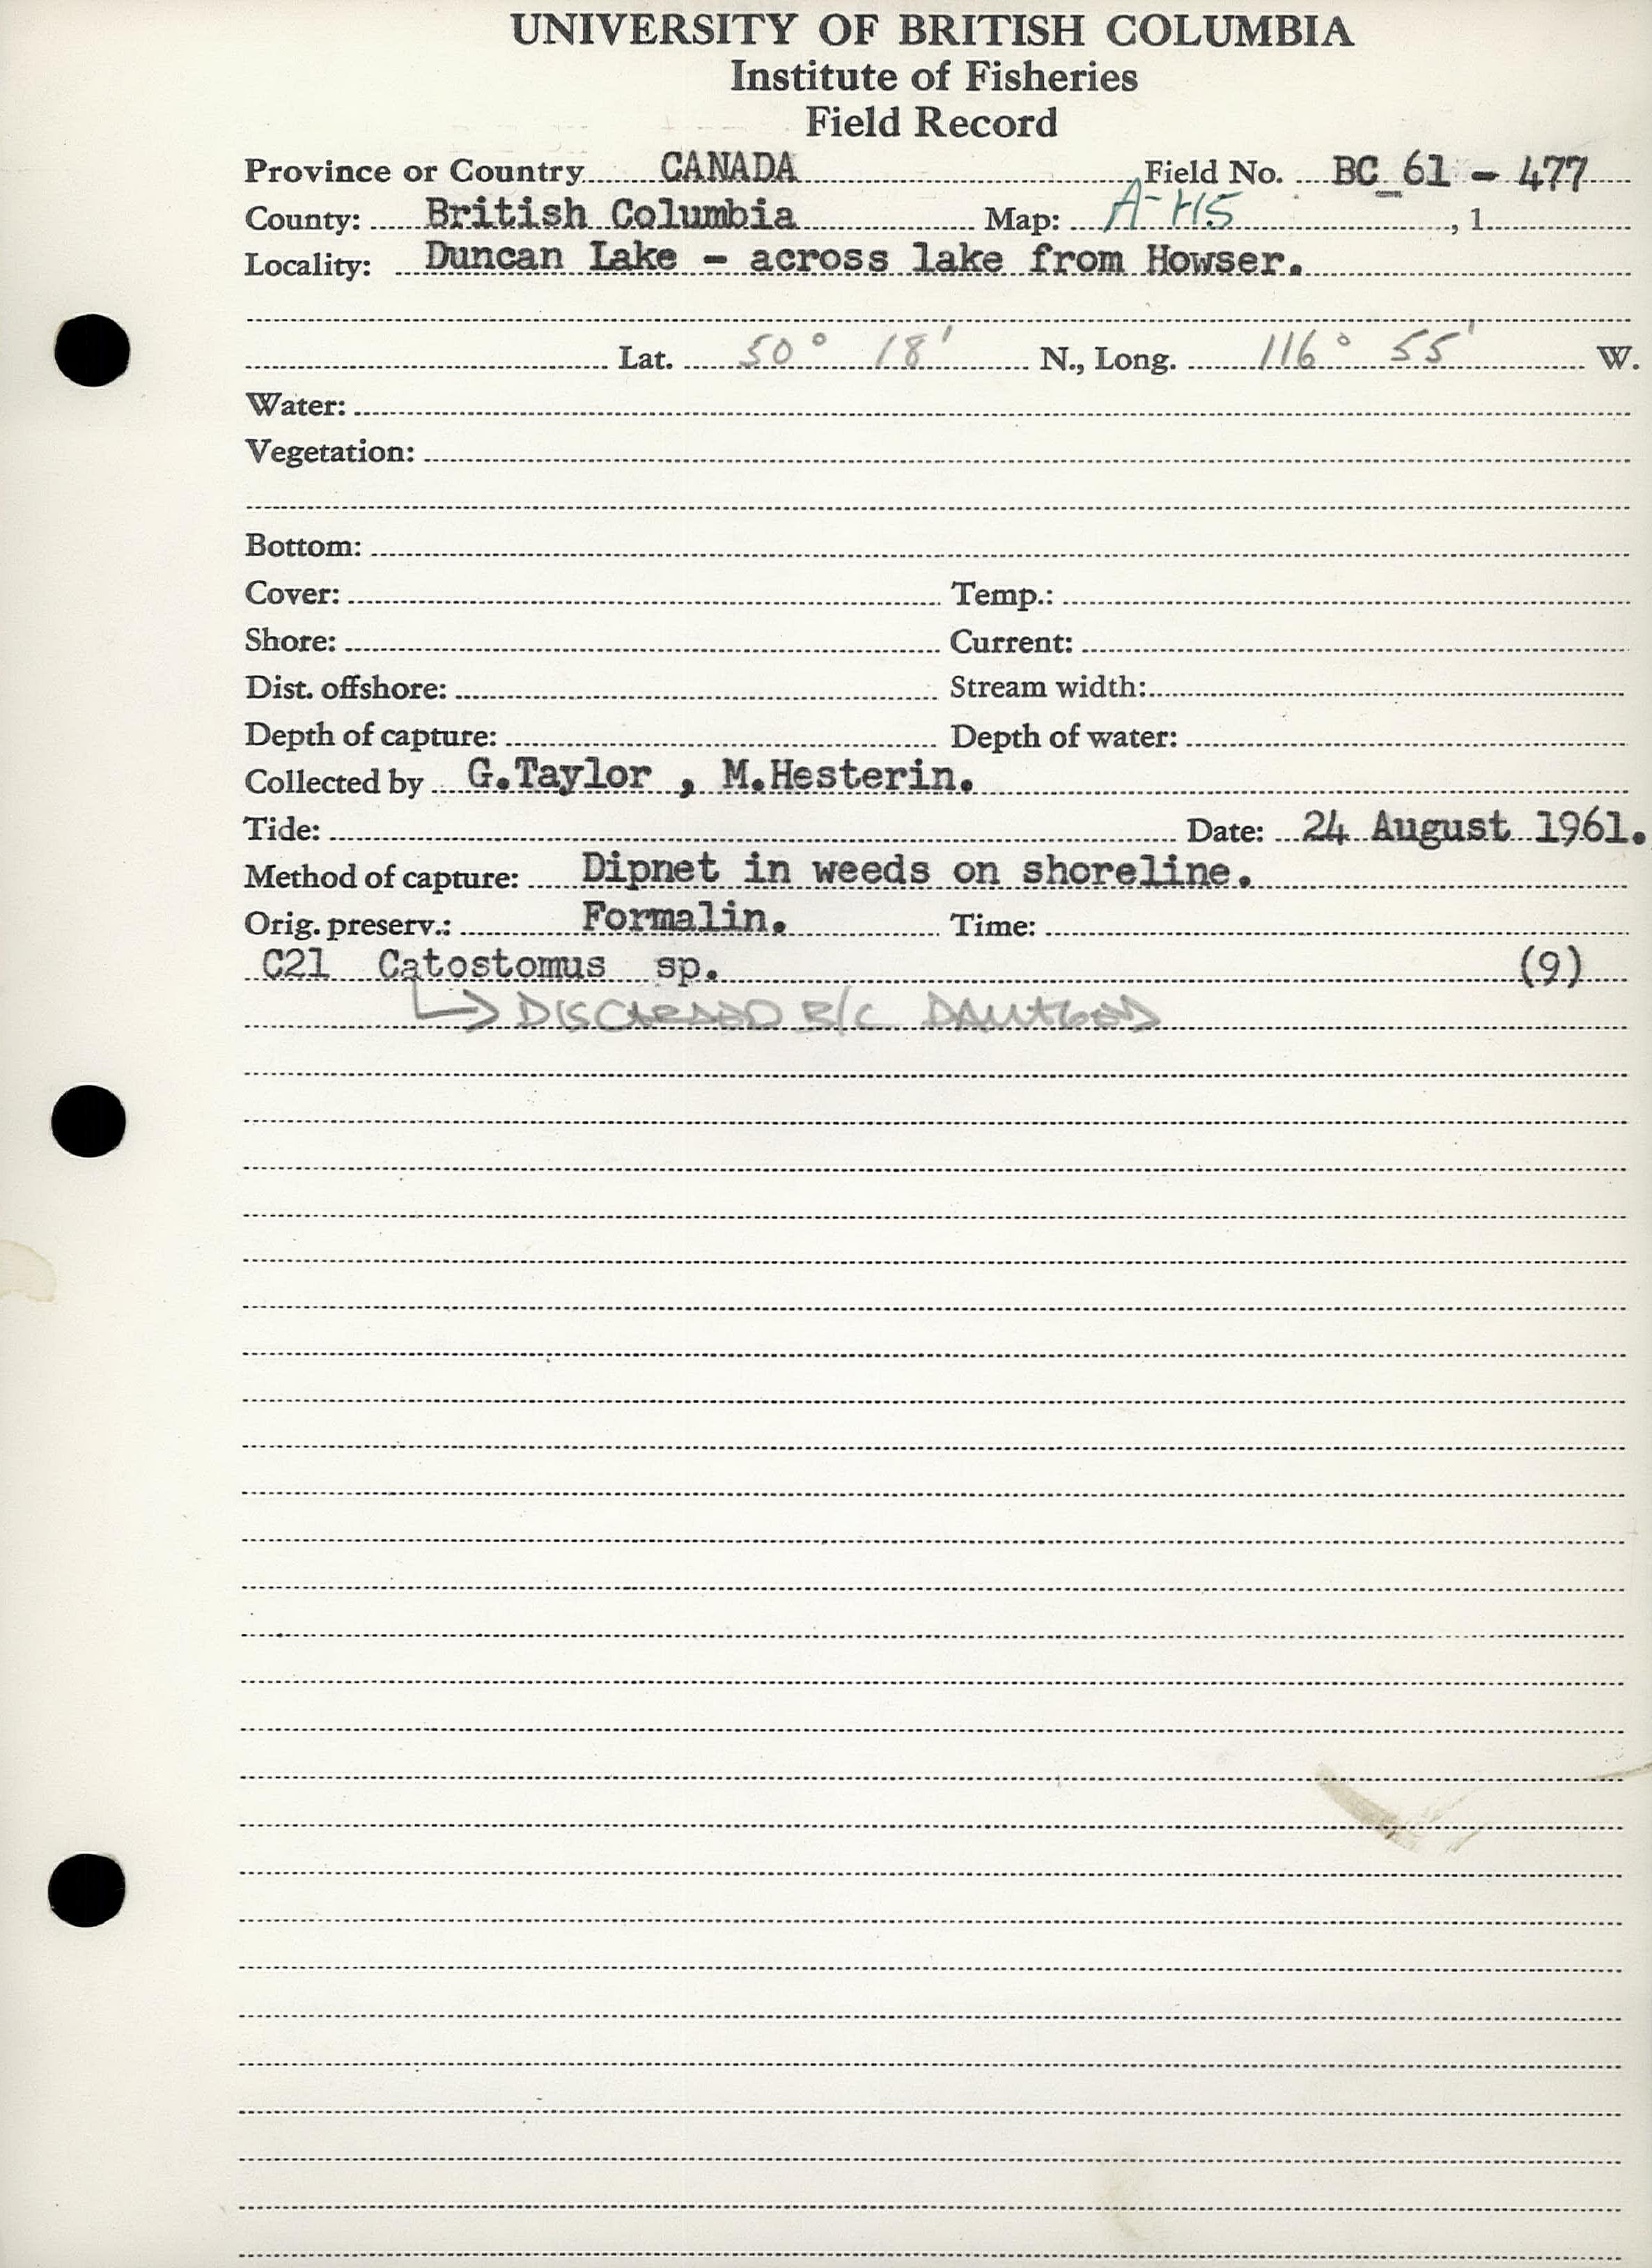 UNIVERSITY OF BRITISH COLUMBIA
Institute of Fisheries
Field Record
Province or Country CANADA Field No. BC_61 - 477
County: British Columbia Map: A-H5 , 1
Locality: Duncan Lake - across lake from Howser.
Lat. 50° 18' N., Long. 116° 55' W.
Water:
Vegetation:
Bottom:
Cover: Temp.:
Shore: Current:
Dist. offshore: Stream width:
Depth of capture: Depth of water:
Collected by G.Taylor , M.Hesterin.
Tide: Date: 24 August 1961.
Method of capture: Dipnet in weeds on shoreline.
Orig. preserv.: Formalin. Time:
C21 Catostomus sp. (9)
→ DISCARDED B/C DAMAGED